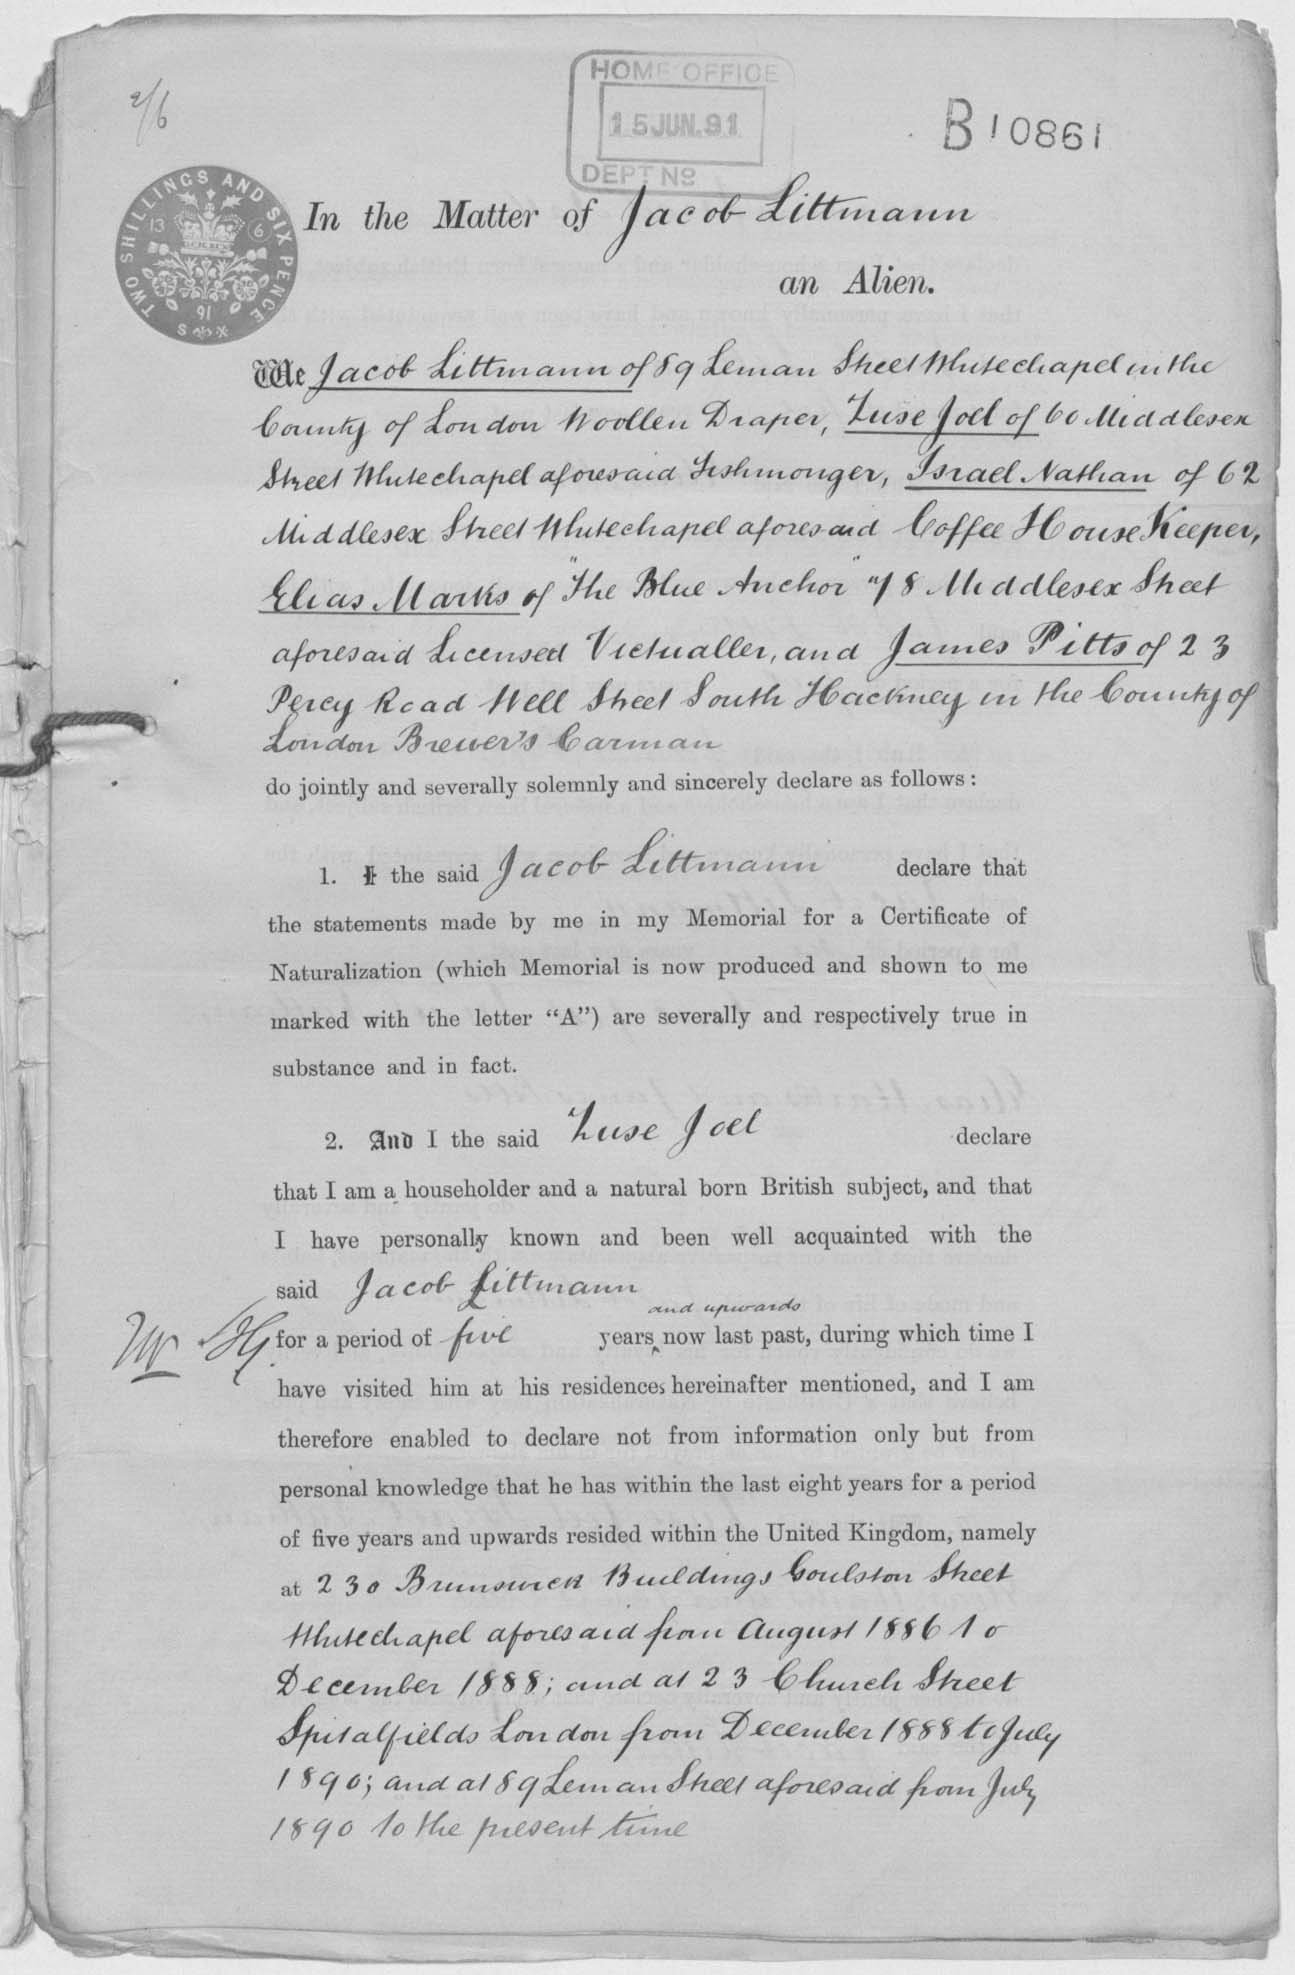 2/6
HOME OFFICE
15 JUN.91
DEPT No
B10861
TWO SHILLINGS AND SIX PENCE
13 6
91
In the Matter of Jacob Littmann
an Alien.
We Jacob Littmann of 89 Leman Street Whitechapel in the
County of London Woollen Draper, Zuse Joel of 60 Middlesex
Street Whitechapel aforesaid Fishmonger, Israel Nathan of 62
Middlesex Street Whitechapel aforesaid Coffee House Keeper,
Elias Marks of "The Blue Anchor" 78 Middlesex Street
aforesaid Licensed Victualler, and James Pitts of 23
Percy Road Well Street South Hackney in the County of
London Brewer's Carman
do jointly and severally solemnly and sincerely declare as follows:
1. I the said Jacob Littmann declare that
the statements made by me in my Memorial for a Certificate of
Naturalization (which Memorial is now produced and shown to me
marked with the letter "A") are severally and respectively true in
substance and in fact.
2. And I the said Zuse Joel declare
that I am a householder and a natural born British subject, and that
I have personally known and been well acquainted with the
said Jacob Littmann
and upwards
for a period of five years now last past, during which time I
have visited him at his residences hereinafter mentioned, and I am
therefore enabled to declare not from information only but from
personal knowledge that he has within the last eight years for a period
of five years and upwards resided within the United Kingdom, namely
at 230 Brunswick Buildings Goulston Street
Whitechapel aforesaid from August 1886 to
December 1888; and at 23 Church Street
Spitalfields London from December 1888 to July
1890; and at 89 Leman Street aforesaid from July
1890 to the present time